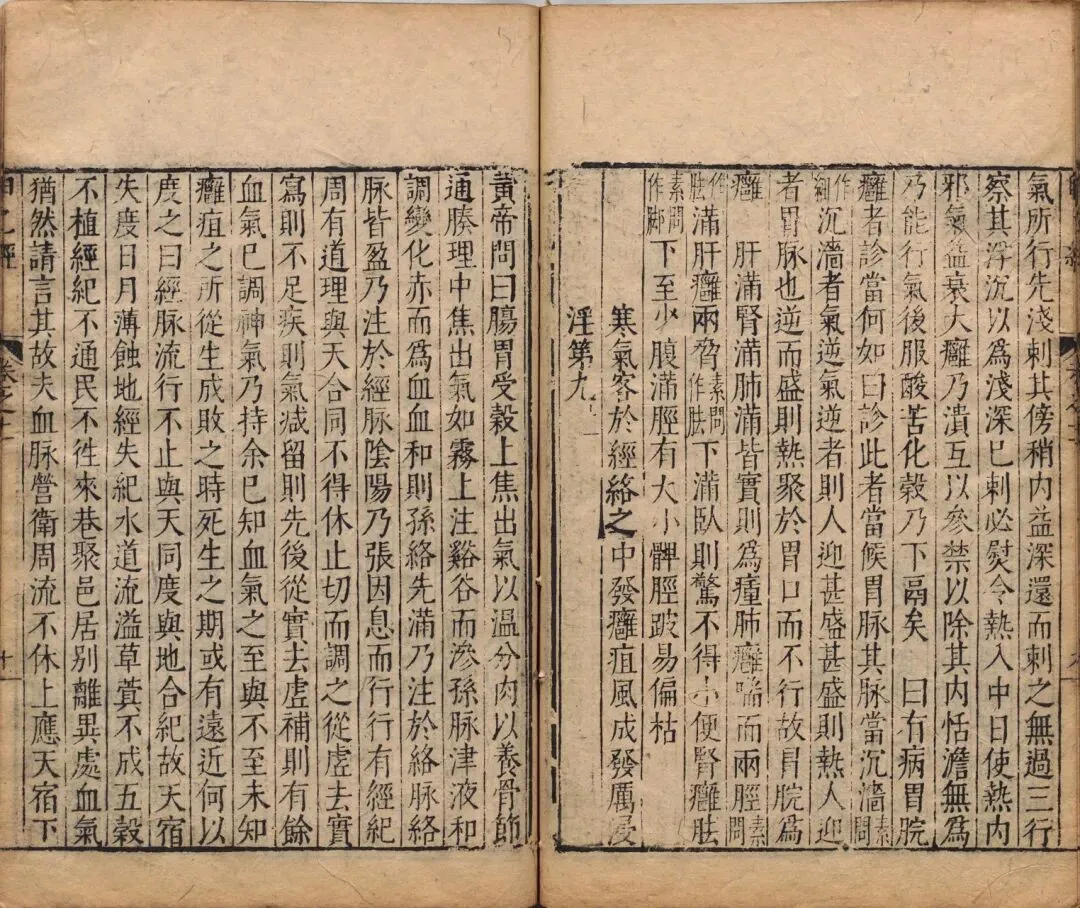 氣所行先淺刺其傍稍内益深還而刺之無過三行
察其浮沉以爲淺深已刺必熨令熱入中日使熱内
邪氣益衰大癰乃潰互以參禁以除其内恬澹無爲
乃能行氣後服酸苦化穀乃下鬲矣　曰有病胃脘
癰者診當何如曰診此者當候胃脉其脉當沉濇素問
作細沉濇者氣逆氣逆者則人迎甚盛甚盛則熱人迎
者胃脉也逆而盛則熱聚於胃口而不行故胃脘爲
癰　肝滿腎滿肺滿皆實則爲瘇肺癰喘而兩脛素問
作胠滿肝癰兩脅素問作胠下滿臥則驚不得小便腎癰胠
素問作脚下至少腹滿脛有大小髀脛跛易偏枯
寒氣客於經絡之中發癰疽風成發厲浸
淫第九
黄帝問曰腸胃受穀上焦出氣以温分肉以養骨節
通腠理中焦出氣如霧上注谿谷而滲孫脉津液和
調變化赤而爲血血和則孫絡先滿乃注於絡脉絡
脉皆盈乃注於經脉陰陽乃張因息而行行有經紀
周有道理與天合同不得休止切而調之從虚去實
寫則不足疾則氣減留則先後從實去虚補則有餘
血氣已調神氣乃持余已知血氣之至與不至未知
癰疽之所從生成敗之時死生之期或有遠近何以
度之曰經脉流行不止與天同度與地合紀故天宿
失度日月薄蝕地經失紀水道流溢草蓂不成五穀
不植經紀不通民不徃來巷聚邑居別離異處血氣
猶然請言其故夫血脉營衛周流不休上應天宿下
甲乙經 卷之十一 十